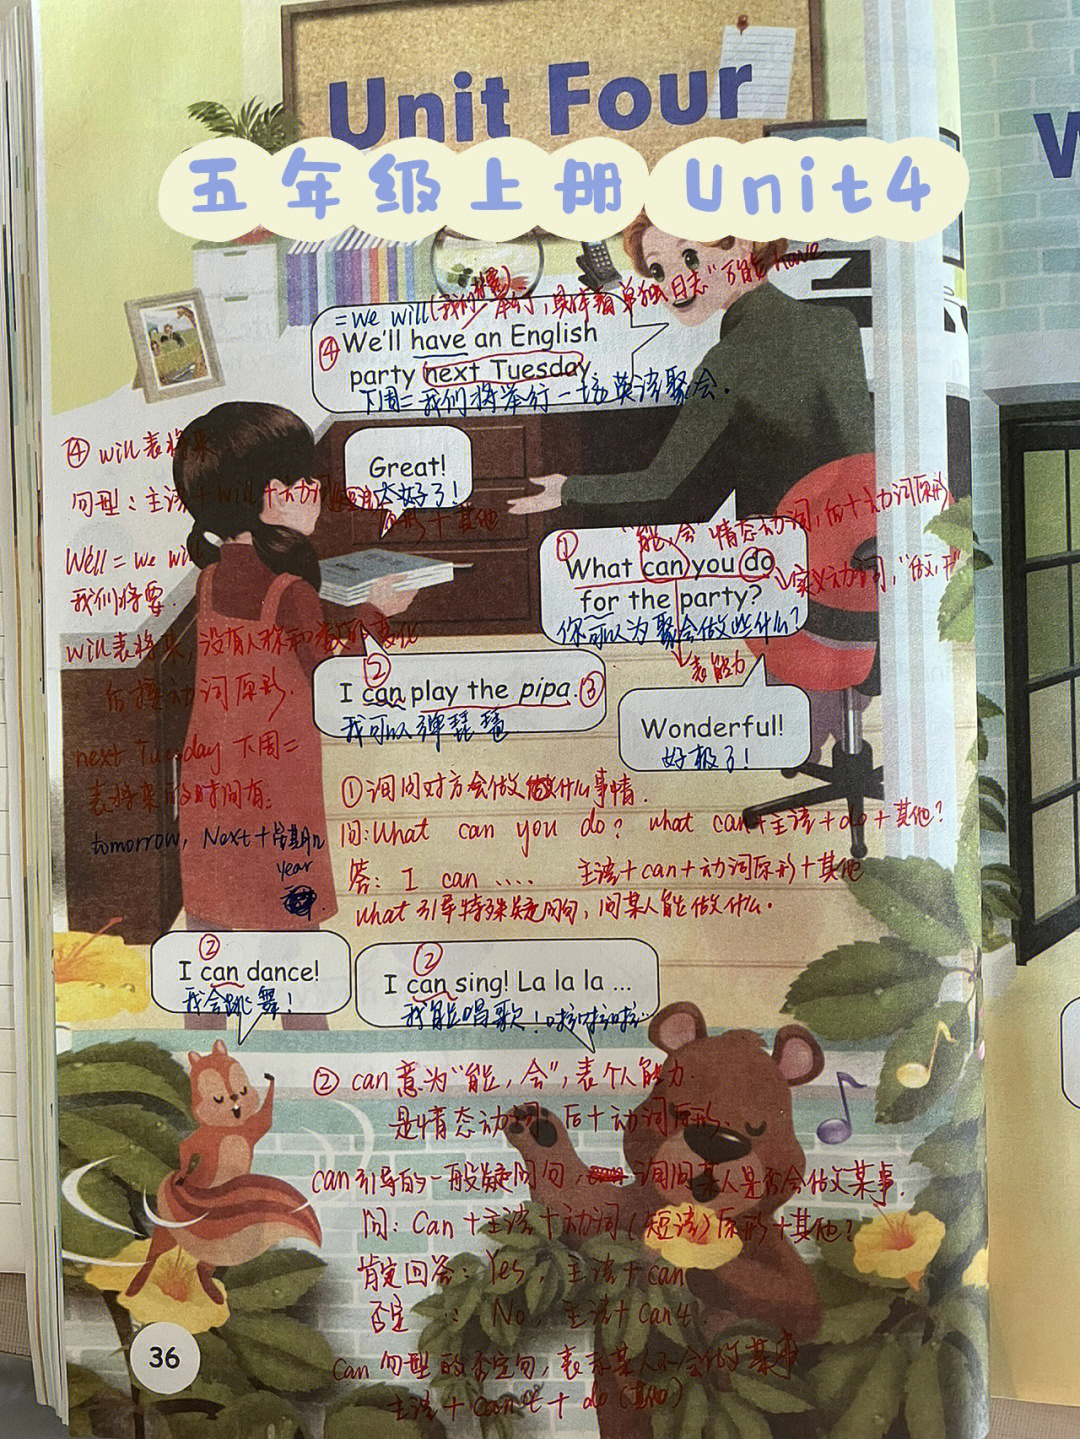 Unit Four
五年级上册 Unit4
=we will(我们将要)
举行,具体看单独日志“万能have
④ We'll have an English
party next Tuesday.
下周二我们将举行一场英语聚会.
④ will表将来
Great!
太好了!
句型:主语+will+动词
原形+其他
We'll = we will
我们将要.
"能,会"情态动词,后+动词原形
① What can you do
实义动词,"做,干"
for the party?
你可以为聚会做些什么?
will表将来,没有人称和数的变化
后接动词原形.
②
表能力
I can play the pipa. ③
我可以弹琵琶
Wonderful!
好极了!
next Tuesday 下周二
表将来的时间有:
tomorrow, Next+星期几
year
①询问对方会做什么事情.
问:What can you do? what can+主语+do+其他?
答: I can .... 主语+can+动词原形+其他
what引导特殊疑问句,问某人能做什么.
②
I can dance!
我会跳舞!
②
I can sing! La la la ...
我能唱歌!啦啦啦...
② can意为"能,会",表个人能力.
是情态动词,后+动词原形.
can引导的一般疑问句, 询问某人是否会做某事.
问: Can+主语+动词(短语)原形+其他?
肯定回答: Yes, 主语+can
否定 : No, 主语+can't.
can句型的否定句,表示某人不会做某事
主语+can't+do(其他)
36